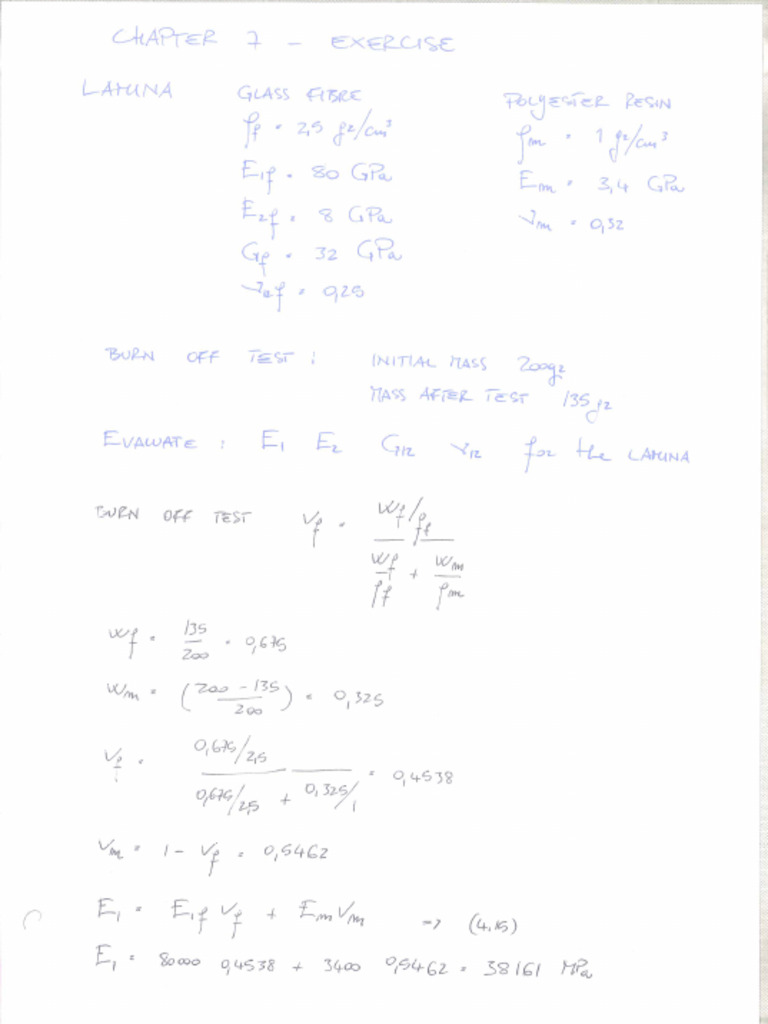 CHAPTER 7 - EXERCISE
LAMINA GLASS FIBRE POLYESTER RESIN
ρf = 2,5 gr/cm³ ρm = 1 gr/cm³
E1f = 80 GPa Em = 3,4 GPa
E2f = 8 GPa νm = 0,32
Gf = 32 GPa
ν12f = 0,25
BURN OFF TEST : INITIAL MASS 200gr
MASS AFTER TEST 135gr
EVALUATE : E1 E2 G12 ν12 for the LAMINA
BURN OFF TEST Vf = (Wf/ρf) / (Wf/ρf + Wm/ρm)
Wf = 135/200 = 0,675
Wm = (200 - 135 / 200) = 0,325
Vf = (0,675/2,5) / (0,675/2,5 + 0,325/1) = 0,4538
Vm = 1 - Vf = 0,5462
E1 = E1f Vf + Em Vm => (4.15)
E1 = 80000 0,4538 + 3400 0,5462 = 38161 MPa